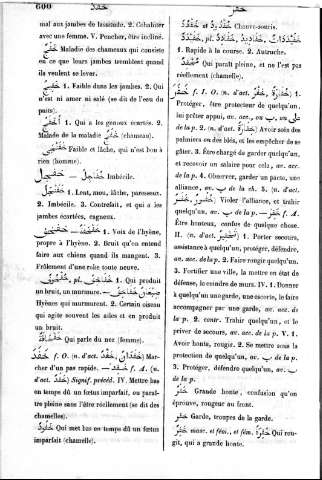 600
خفد
خفر
mal aux jambes de lassitude. 2. Cohabiter
avec une femme. V. Pencher, être incliné.
خفج Maladie des chameaux qui consiste
en ce que leurs jambes tremblent quand
ils veulent se lever.
خفيج 1. Faible dans les jambes. 2. Qui
n'est ni amer ni salé (se dit de l'eau du
puits).
أخفج 1. Qui a les genoux écartés. 2.
Malade de la maladie خفج (chameau).
Faible et lâche, qui n'est bon à
rien (homme).
Imbécile.
1. Lent, mou, lâche, paresseux.
2. Imbécile. 3. Contrefait, et qui a les
jambes écartées, cagneux.
1. Voix de l'hyène,
propre à l'hyène. 2. Bruit qu'on entend
faire aux chiens quand ils mangent. 3.
Frôlement d'une robe toute neuve.
pl. 1. Qui produit
un bruit, un murmure.
Hyènes qui murmurent. 2. Certain oiseau
qui agite souvent les ailes et en produit
un bruit.
Qui parle du nez (femme).
خفد f. O. (n. d'act. خفدان, خفد) Mar-
cher d'un pas rapide. — خفد f. A. (n.
d'act. خفد) Signif. précéd. IV. Mettre bas
en temps dû un fœtus imparfait, ou paraî-
tre pleine sans l'être réellement (se dit des
chamelles).
خفود Qui met bas en temps dû un fœtus
imparfait (chamelle).
خفدد et خفدود Chauve-souris.
خفيدد, pl. خفادد, خفيددات
1. Rapide à la course. 2. Autruche.
Qui paraît pleine, et ne l'est pas
réellement (chamelle).
خفر f. I. O. (n. d'act. خفر, خفارة) 1.
Protéger, être protecteur de quelqu'un,
lui prêter appui, av. acc., ou ب, ou على
de la p. 2. (n. d'act. خفارة) Avoir soin des
palmiers ou des blés, et les empêcher de se
gâter. 3. Être chargé de garder quelqu'un,
et recevoir un salaire pour cela, av. acc.
de la p. 4. Observer, garder un pacte, une
alliance, av. ب de la ch. 5. (n. d'act.
خفور, خفر) Violer l'alliance, et trahir
quelqu'un, av. ب de la p. — خفر f. A.
Être honteux, confus de quelque chose.
II. (n. d'act. تخفير) 1. Porter secours,
assistance à quelqu'un, protéger, défendre,
av. acc. de la p. 2. Faire rougir quelqu'un.
3. Fortifier une ville, la mettre en état de
défense, la ceindre de murs. IV. 1. Donner
à quelqu'un une garde, une escorte, le faire
accompagner par une garde, av. acc. de
la p. 2. contr. Trahir quelqu'un, et le
priver de secours, av. acc. de la p. V. 1.
Avoir honte, rougir. 2. Se mettre sous la
protection de quelqu'un, av. ب de la p.
3. Protéger, défendre quelqu'un, av. ب
de la p.
خفر Grande honte, confusion qu'on
éprouve, rougeur au front.
خفر Garde, troupes de la garde.
خفر masc. et fém., et fém. خفرة Qui rou-
git, qui a grande honte.